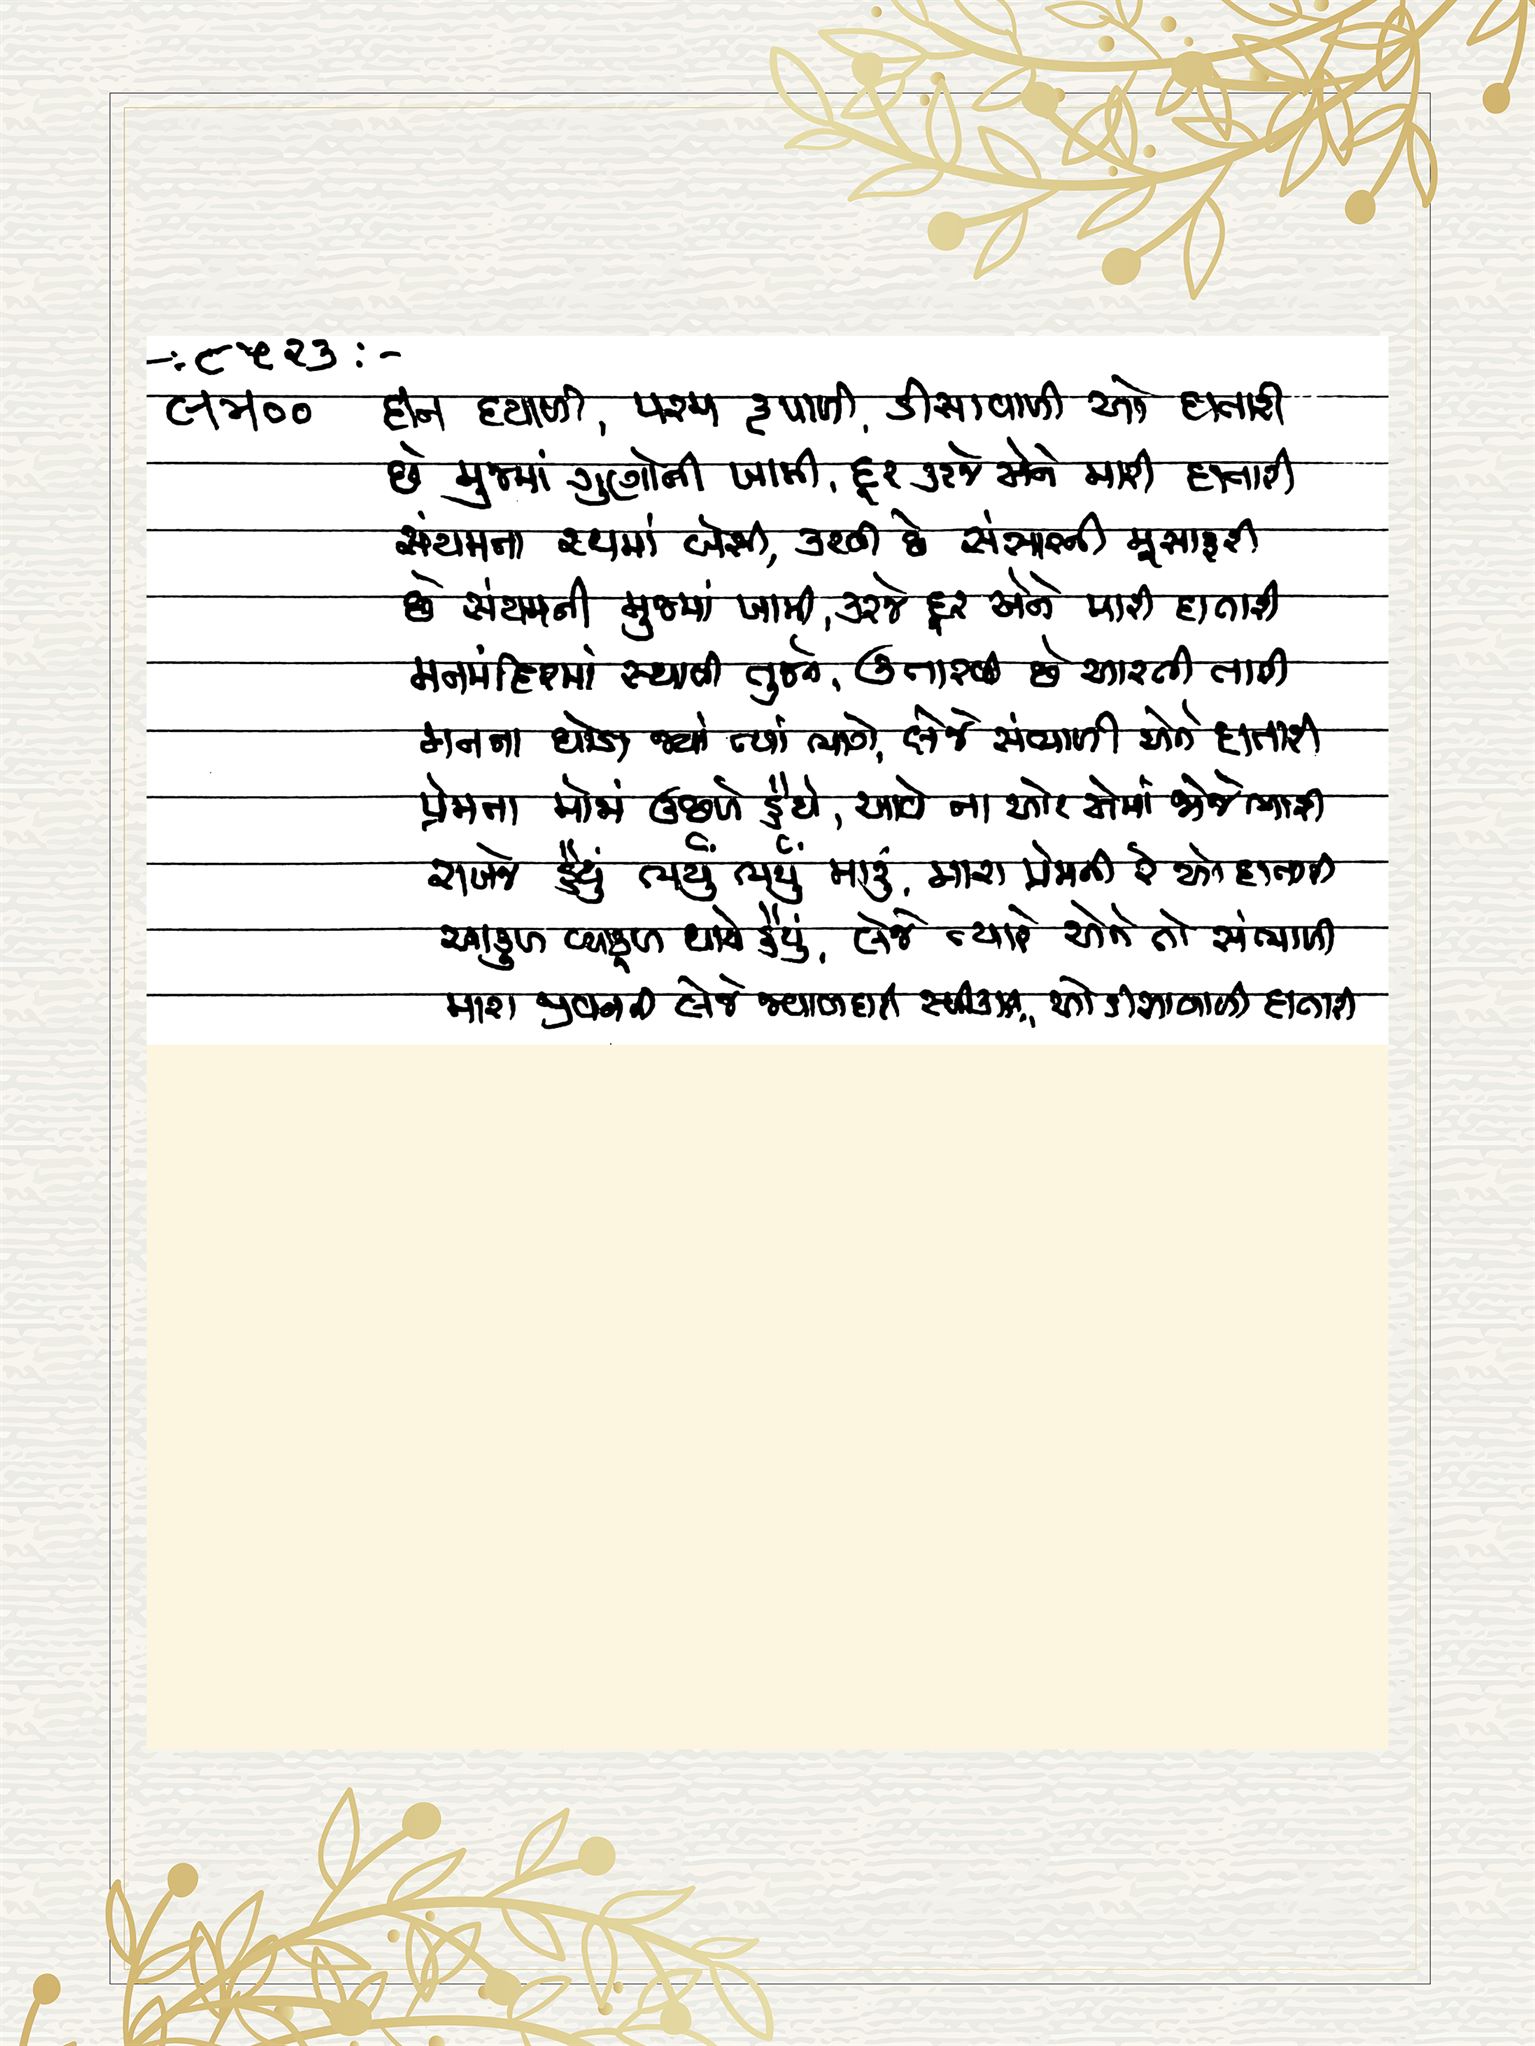 -:૮૫૨૩:-
દીન દયાળી, પરમ રૂપાળી, ડીસાવાળી ઓ દાતારી
છે મુજમાં ગુણોની ખામી, દૂર કરજે એને મારી દાતારી
સંયમના રથમાં બેસી, કરવી છે સંસારની મૂસાફરી
છે સંયમની મુજમાં ખામી, કરજે દૂર એને મારી દાતારી
મનમંદિરમાં સ્થાપી તુજને, ઉતારવી છે આરતી તારી
મનના ઘોડા જ્યાં ત્યાં ભાગે, લેજે સંભાળી એને દાતારી
પ્રેમના મોજાં ઉછળે હૈયે, આવે ના ઓટ એમાં જોજે મારી
રાખજે હૈયું ભર્યું ભર્યું મારું, મારા પ્રેમની રે ઓ દાતારી
આકુળ વ્યાકૂળ થાયે હૈયું, લેજે ત્યારે એને તો સંભાળી
મારા જીવનની લેજે જવાબદારી સ્વીકારી, ઓ ડીસાવાળી દાતારી